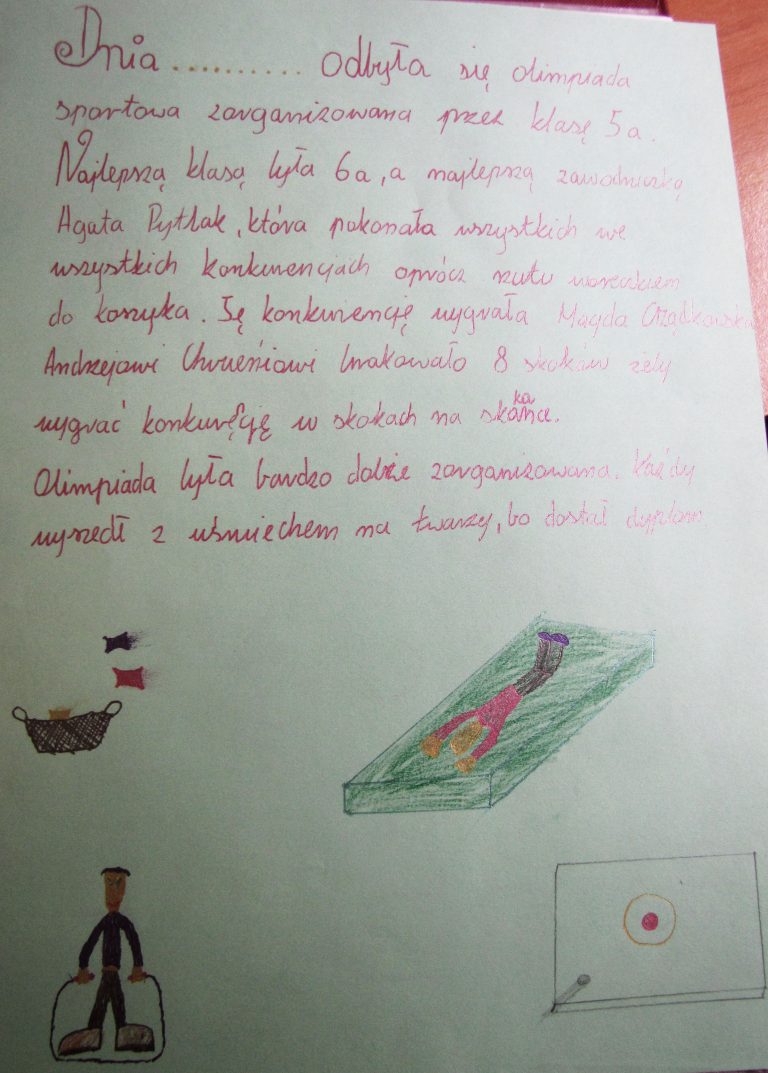 Dnia ........... odbyła się olimpiada
sportowa zorganizowana przez klasę 5a.
Najlepszą klasą była 6a, a najlepszą zawodniczką
Agata Pytlak, która pokonała wszystkich we
wszystkich konkurencjach oprócz rzutu woreczkiem
do koszyka. Tę konkurencję wygrała Magda
Andrzejowi brakowało 8 skoków żeby
wygrać konkuręcję w skokach na skakance.
Olimpiada była bardzo dobrze zorganizowana. Każdy
wyszedł z uśmiechem na twarzy, bo dostał dyplom